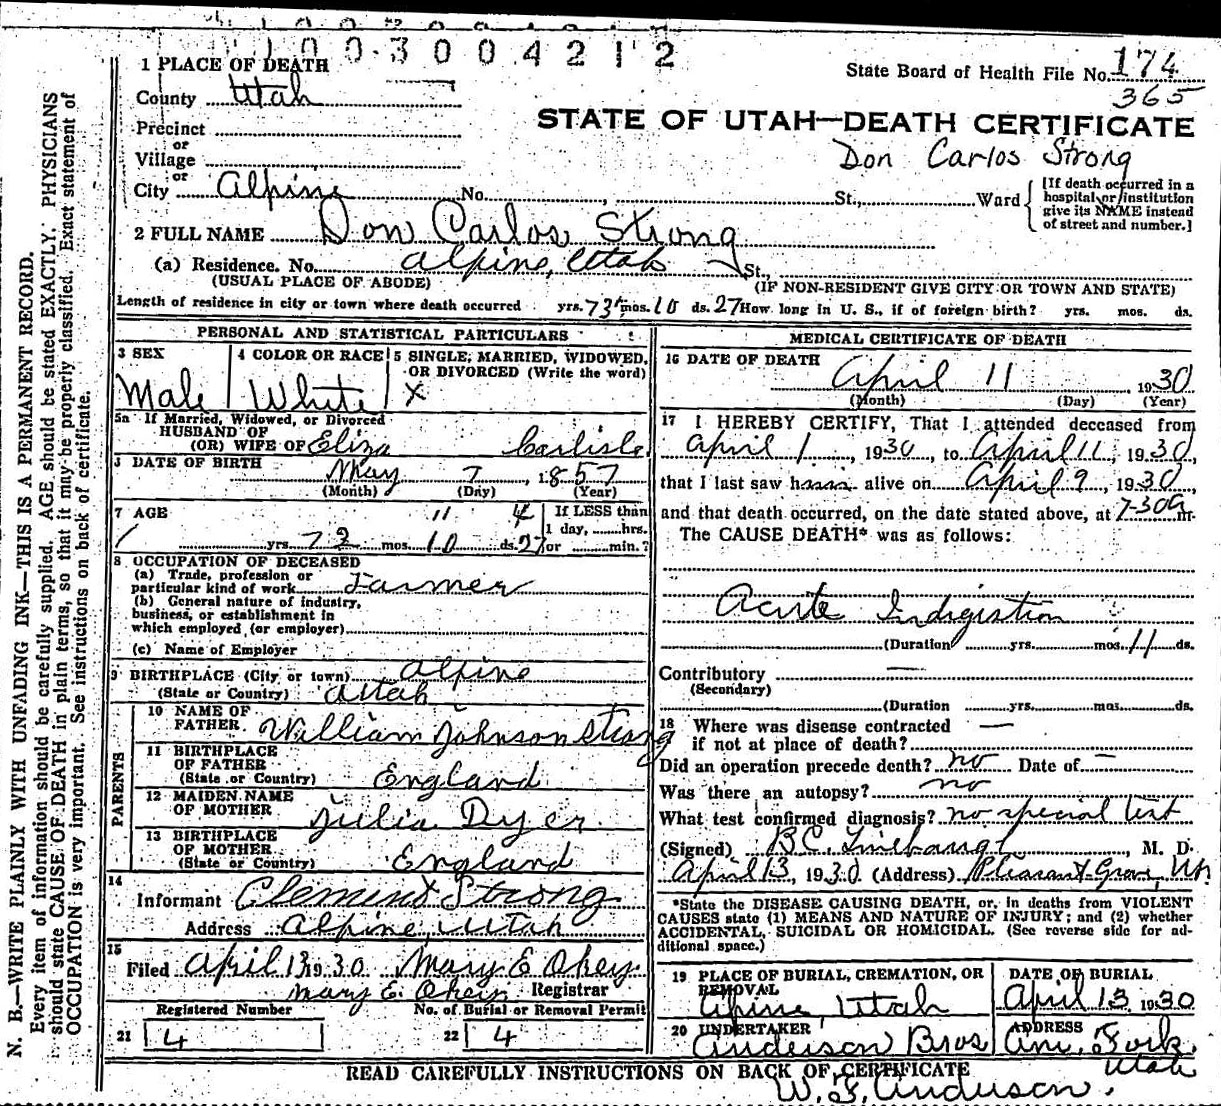 1003004212
1 PLACE OF DEATH
State Board of Health File No. 174
365
County Utah
STATE OF UTAH—DEATH CERTIFICATE
Precinct
or
Don Carlos Strong
Village
or
City Alpine No. , St., Ward
[If death occurred in a hospital or institution give its NAME instead of street and number.]
2 FULL NAME Don Carlos Strong
(a) Residence. No. Alpine, Utah St.,
(USUAL PLACE OF ABODE) (IF NON-RESIDENT GIVE CITY OR TOWN AND STATE)
Length of residence in city or town where death occurred yrs. 73 mos. 10 ds. 27 How long in U. S., if of foreign birth? yrs. mos. ds.
PERSONAL AND STATISTICAL PARTICULARS
3 SEX
Male
4 COLOR OR RACE
White
5 SINGLE, MARRIED, WIDOWED,
OR DIVORCED (Write the word)
X
5a If Married, Widowed, or Divorced
HUSBAND OF
(OR) WIFE OF Eliza Carlisle
DATE OF BIRTH
May 7, 1857
(Month) (Day) (Year)
7 AGE
11 4
yrs. 72 mos. 10 ds. 27
If LESS than
1 day, hrs.
or min.?
8 OCCUPATION OF DECEASED
(a) Trade, profession or
particular kind of work Farmer
(b) General nature of industry,
business, or establishment in
which employed (or employer)
(c) Name of Employer
9 BIRTHPLACE (City or town) Alpine
(State or Country) Utah
PARENTS
10 NAME OF
FATHER William Johnson Strong
11 BIRTHPLACE
OF FATHER
(State or Country) England
12 MAIDEN NAME
OF MOTHER Julia Dyer
13 BIRTHPLACE
OF MOTHER
(State or Country) England
14
Informant Clement Strong
Address Alpine, Utah
15
Filed April 13 1930 Mary E Okey
Mary E. Okey Registrar
Registered Number No. of Burial or Removal Permit
21 4 22 4
MEDICAL CERTIFICATE OF DEATH
16 DATE OF DEATH
April 11 1930
(Month) (Day) (Year)
17 I HEREBY CERTIFY, That I attended deceased from
April 1, 1930, to April 11, 1930,
that I last saw h alive on April 9, 1930,
and that death occurred, on the date stated above, at 7-30a m.
The CAUSE DEATH* was as follows:
Acute Indigistion
(Duration yrs. mos. 11 ds.
Contributory —
(Secondary)
(Duration yrs. mos. ds.
18 Where was disease contracted —
if not at place of death?
Did an operation precede death? no Date of —
Was there an autopsy? no
What test confirmed diagnosis? no special test
(Signed) B.C. , M. D.
April 13, 1930 (Address) Pleasant Grove, Ut.
*State the DISEASE CAUSING DEATH, or, in deaths from VIOLENT
CAUSES state (1) MEANS AND NATURE OF INJURY; and (2) whether
ACCIDENTAL, SUICIDAL OR HOMICIDAL. (See reverse side for ad-
ditional space.)
19 PLACE OF BURIAL, CREMATION, OR
REMOVAL
Alpine, Utah
DATE OF BURIAL
April 13 1930
20 UNDERTAKER
Anderson Bros
ADDRESS
Am. Fork,
Utah
READ CAREFULLY INSTRUCTIONS ON BACK OF CERTIFICATE
W. F. Anderson.
N. B.—WRITE PLAINLY WITH UNFADING INK—THIS IS A PERMANENT RECORD.
Every item of information should be carefully supplied. AGE should be stated EXACTLY. PHYSICIANS
should state CAUSE OF DEATH in plain terms, so that it may be properly classified. Exact statement of
OCCUPATION is very important. See instructions on back of certificate.